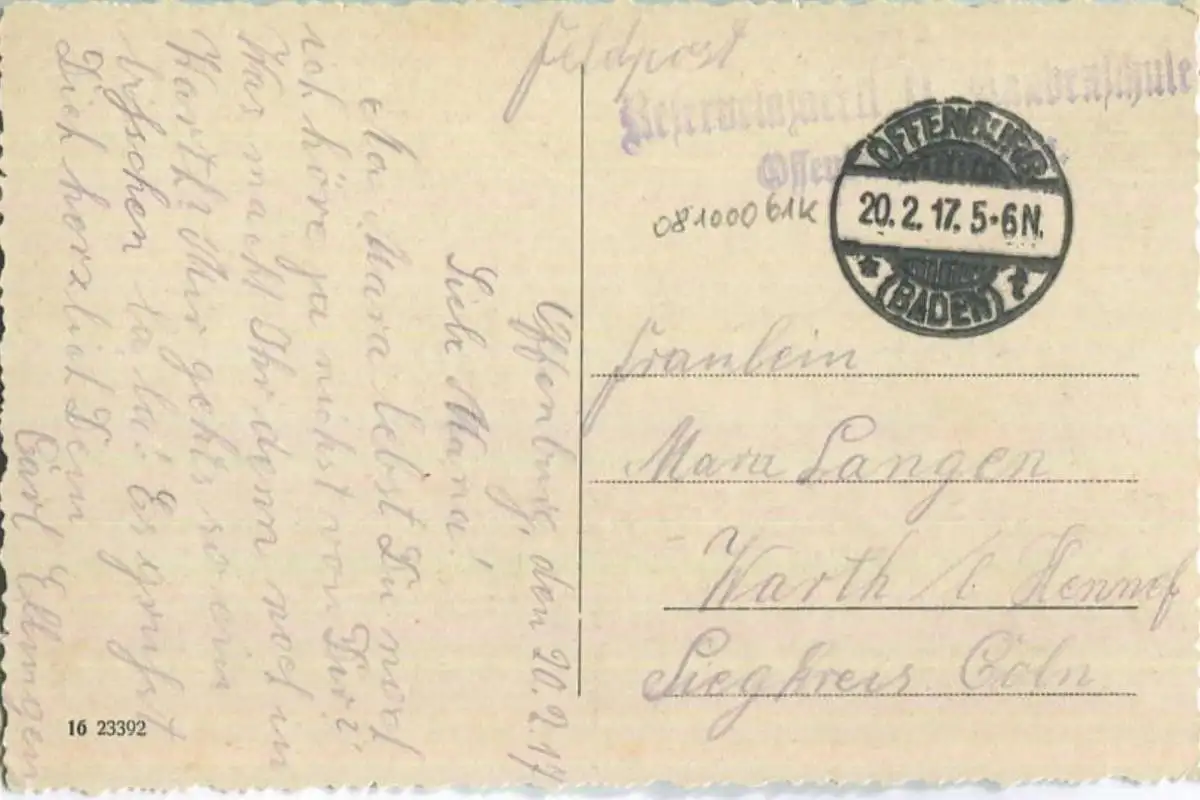 Feldpost
OFFENBURG
20.2.17. 5-6 N.
(BADEN)
081000 61K
Fräulein
Mara Langen
Warth b/ Hennef
Siegkreis Cöln
Offenburg, den 20.2.17
Liebe Mara!
Na Mara lebst Du noch
ich höre ja nichst von Dir?
Was macht Ihr denn noch in
Warth? Mir geht's so ein
bischen la la! Es grüsst
Dich herzlich Dein
Carl
16 23392